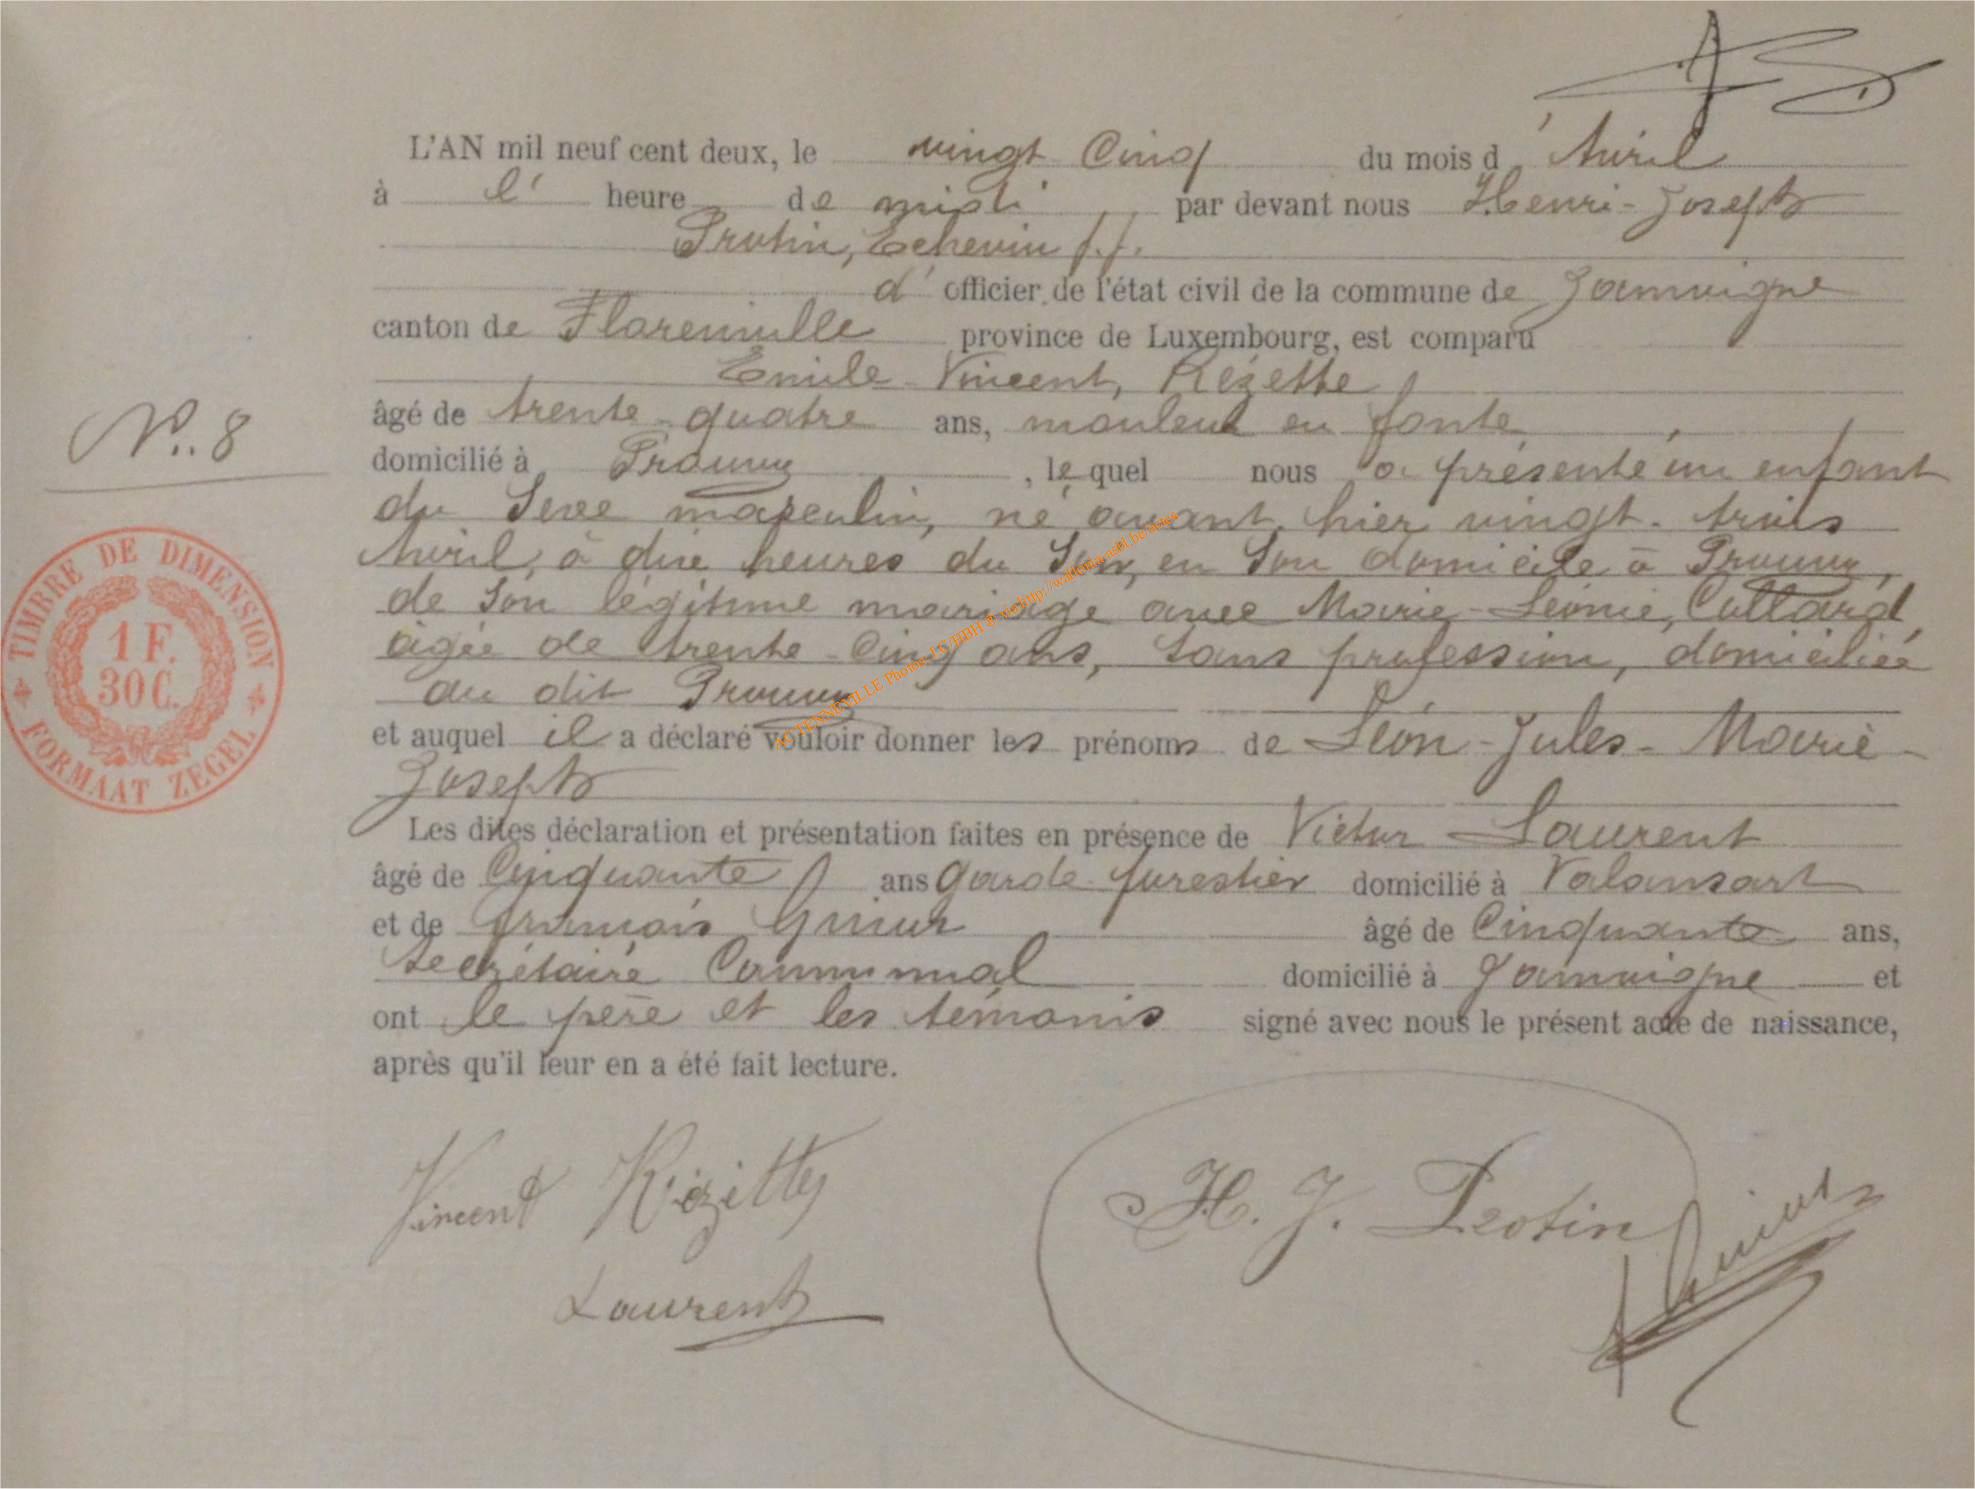 L'AN mil neuf cent deux, le vingt Cinq du mois d' Avril
à l' heure de midi par devant nous Henri-Joseph
Protin, Echevin f.f.
d' officier de l'état civil de la commune de Jamoigne
canton de Florenville province de Luxembourg, est comparu
Emile Vincent, Rézette
âgé de trente-quatre ans, mouleur en fonte,
N°. 8
domicilié à Prouvy, lequel nous a présenté un enfant
du Sexe masculin, né avant hier vingt-trois
Avril, à dix heures du Soir, en Son domicile à Prouvy,
de Son légitime mariage avec Marie-Léonie, Collard,
âgée de trente-Cinq ans, Sans profession, domiciliée
au dit Prouvy
et auquel il a déclaré vouloir donner les prénoms de Léon-Jules-Marie-
Joseph
Les dites déclaration et présentation faites en présence de Victor Laurent
âgé de Cinquante ans Garde forestier domicilié à Valansart
et de François âgé de Cinquante ans,
Secrétaire Communal domicilié à Jamoigne et
ont le père et les témoins signé avec nous le présent acte de naissance,
après qu'il leur en a été fait lecture.
TIMBRE DE DIMENSION
1 F.
30 C.
FORMAAT ZEGEL
Vincent Rézette
H. J. Protin
Laurent